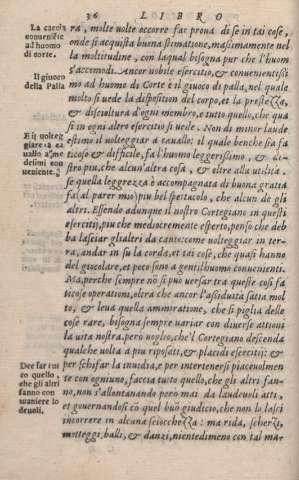 36 LIBRO
La caccia
conueniẽte
ad huomo
di corte.
Il giuoco
della Palla
E il uolteg
giare ıa ca
uallo a’me
desimi con
ueniente.
Dee far tut
to quello,
che gli altri
fanno con
maniere lo
deuoli.
ra, molte uolte occorre far proua di se in tai cose,
onde si acquista buona stimatione, massimamente nel
la moltitudine, con laqual bisogna pur che l'huom
s'accomodi. Ancor nobile esercitio, & conuenientissi
mo ad huomo di Corte è il giuoco di palla, nel quale
molto si uede la disposition del corpo, et la prestezza,
& discioltura d'ogni membro, e tutto quello, che qua
si in ogni altro esercitio si uede. Non di minor laude
estimo il uolteggiar a cauallo: il quale benche sia fa
ticoso & difficile, fa l'huomo leggerissimo, & de-
stro piu, che alcun'altra cosa, & oltre alla utilità,
se quella leggrezza è accompagnata di buona gratia
fa (al parer mio) piu bel spettacolo, che alcun de gli
altri. Essendo adunque il nostro Cortegiano in questi
esercitij, piu che mediocremente esperto, penso che deb
ba lasciar gli altri da canto: come uolteggiar in ter-
ra, andar in su la corda, et tai cose, che quasi hanno
del giocolare, et poco sono a gentilhuomo conuenienti.
Ma, perche sempre nõ si può uersar tra queste cosi fa
ticose operationi, oltra che ancor l'assiduità satia mol
to, & leua quella ammiratione, che si piglia delle
cose rare, bisogna sempre uariar con diuerse attioni
la uita nostra. però uoglio, che'l Cortegiano descenda
qualche uolta a piu riposati, & placidi esercitij: &
per schifar la inuidia, e per intertenersi piaceuolmen
te con ogniuno, faccia tutto quello, che gli altri fan-
no, non s'allontanando però mai da laudeuoli atti,
et gouernandosi cõ quel buõ giudicio, che non lo lasci
incorrere in alcuna sciocchezza: ma rida, scherzi,
motteggi, balli, & danzi, nientedimeno con tal ma-